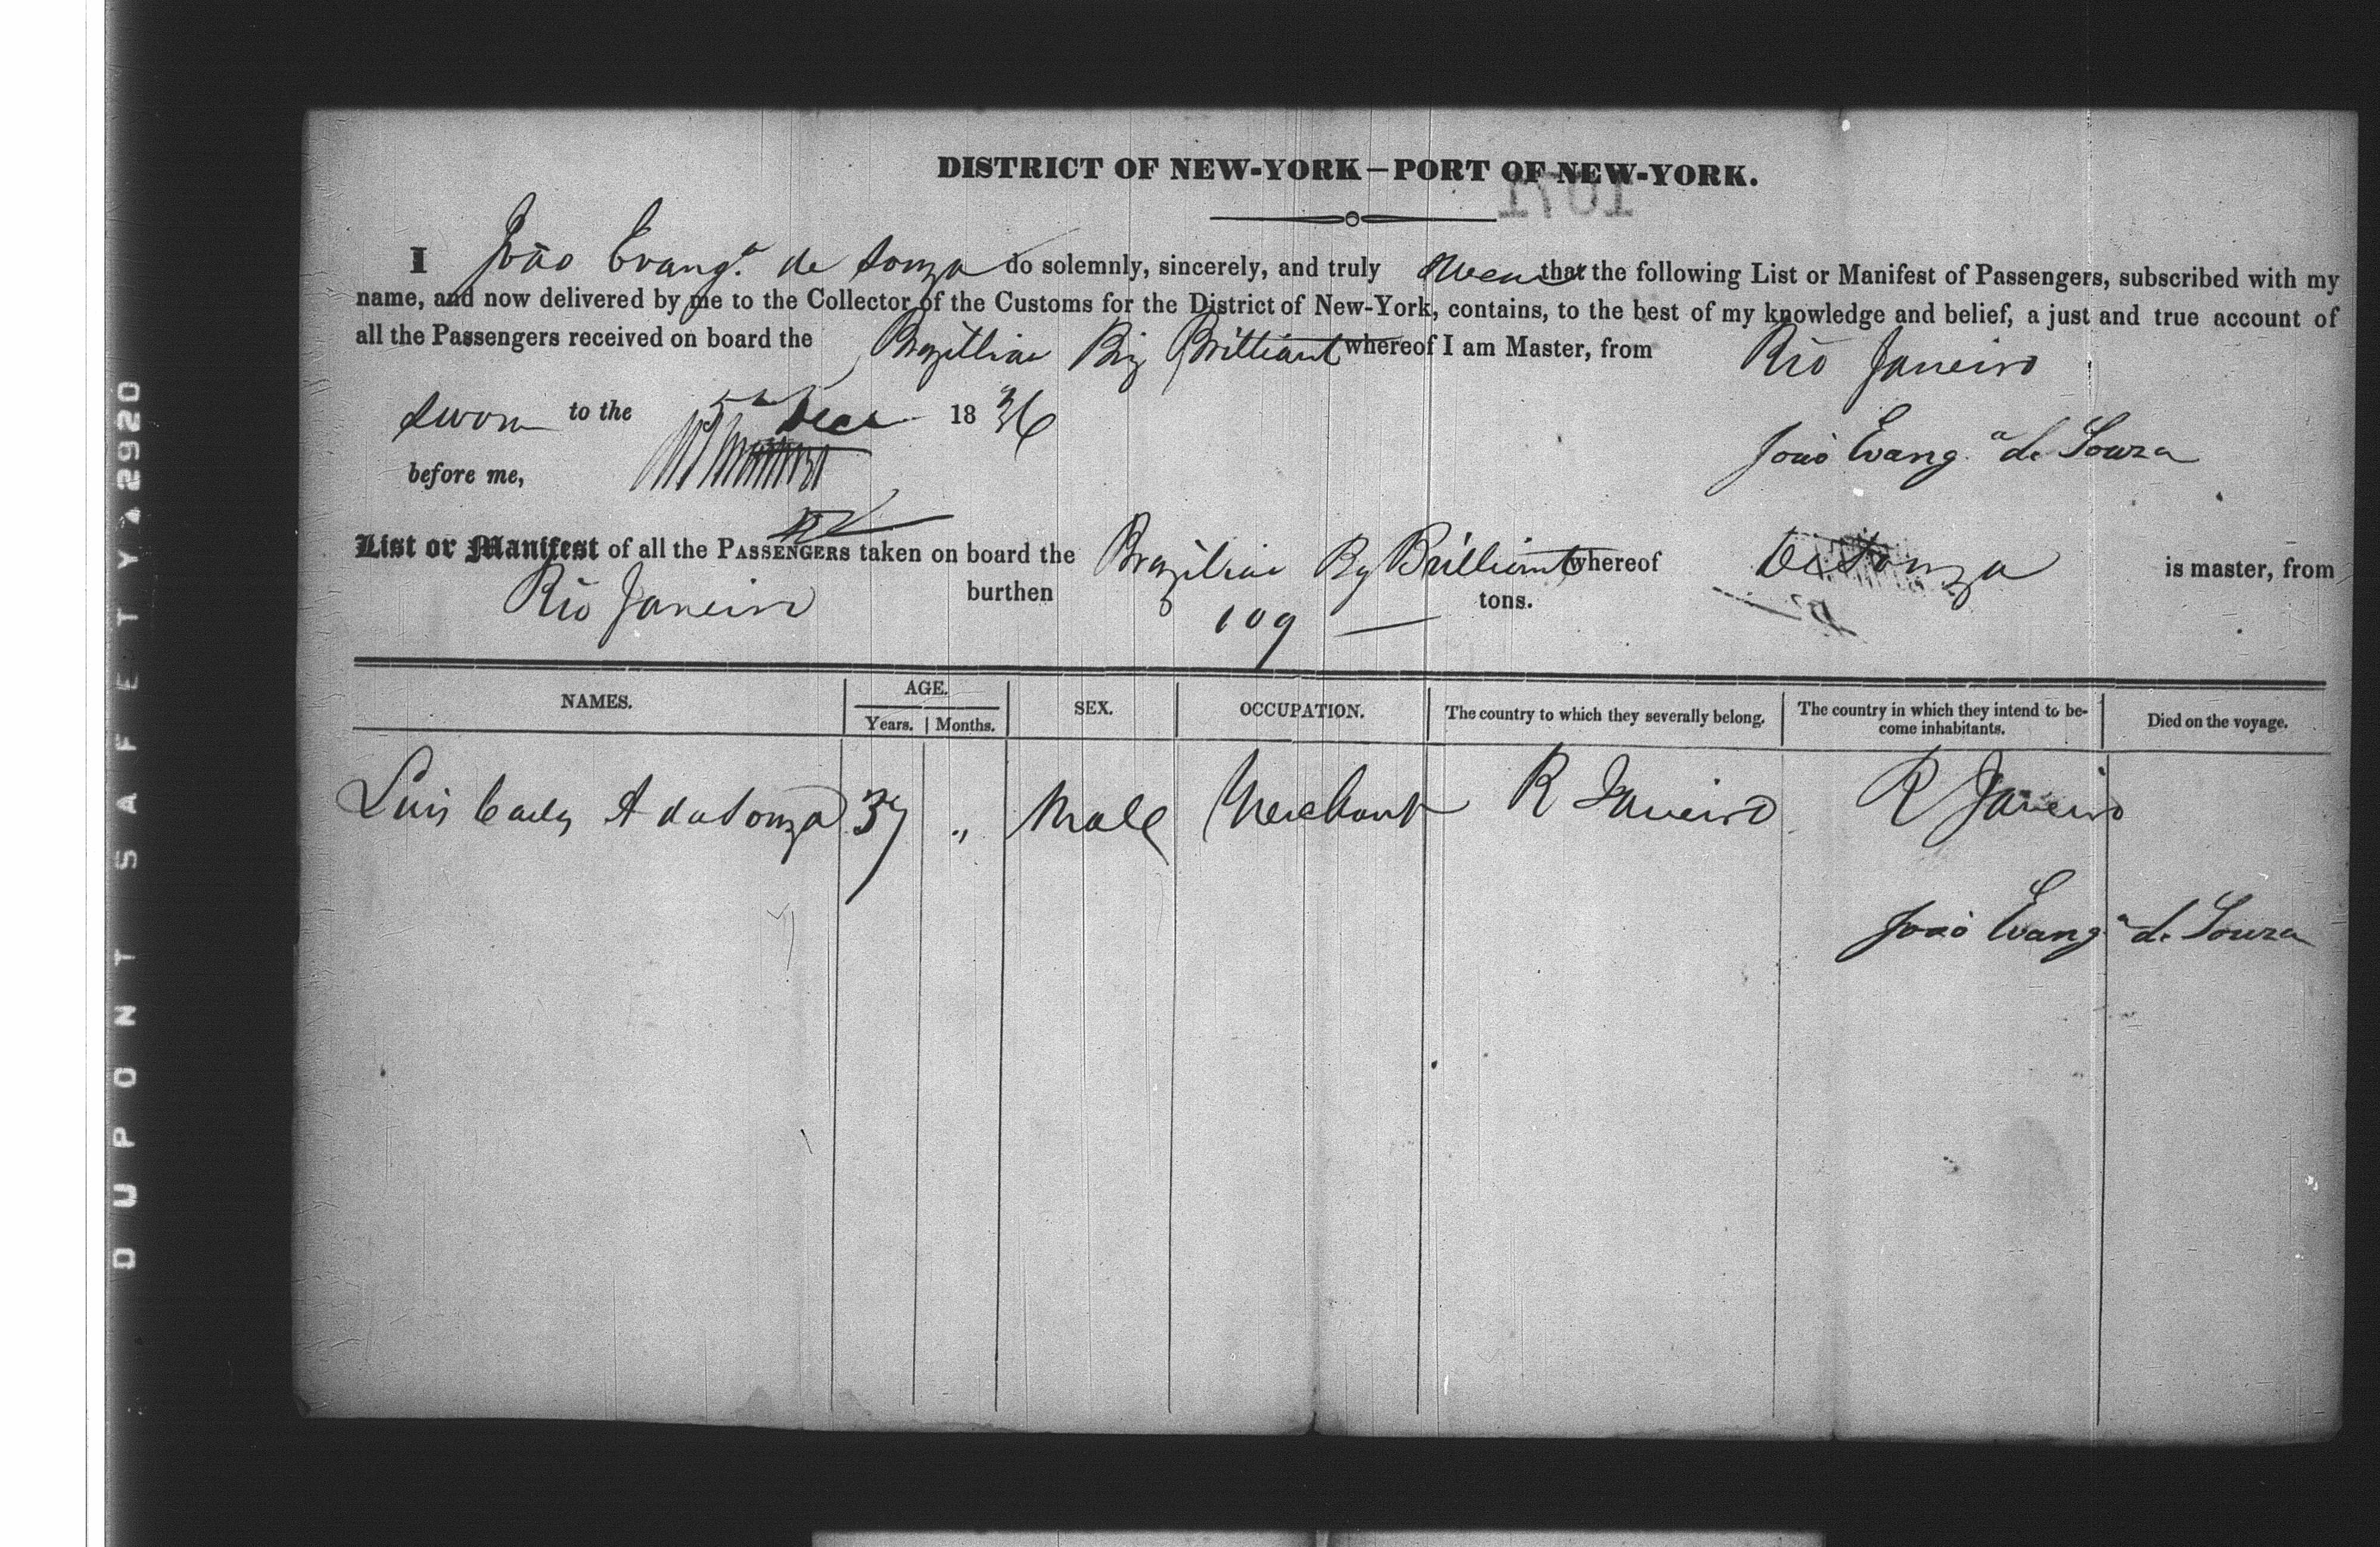 DISTRICT OF NEW-YORK—PORT OF NEW-YORK.
1701
I João Evang.ª de Souza do solemnly, sincerely, and truly swear that the following List or Manifest of Passengers, subscribed with my
name, and now delivered by me to the Collector of the Customs for the District of New-York, contains, to the best of my knowledge and belief, a just and true account of
all the Passengers received on board the Brazillian Brig Brilliant whereof I am Master, from Rio Janeiro
Sworn to the 5th Decr 1836
João Evang.ª de Souza
before me,
List or Manifest of all the PASSENGERS taken on board the Brazilian Bg Brilliant whereof De Souza is master, from
Rio Janeiro burthen 109 — tons.
NAMES. AGE. SEX. OCCUPATION. The country to which they severally belong. The country in which they intend to be- Died on the voyage.
Years. Months. come inhabitants.
Luis A da Souza 37 " Male Merchant R Janeiro R Janeiro
João Evang.ª de Souza
DUPONT SAFETY 2920